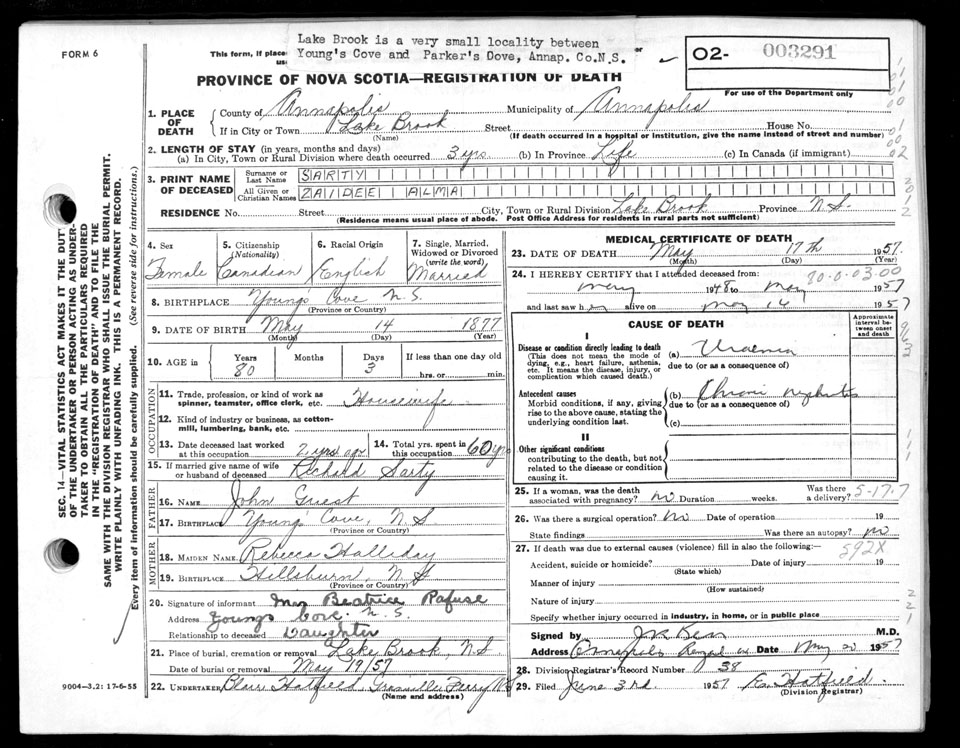 Lake Brook is a very small locality between
Young's Cove and Parker's Cove, Annap. Co.N.S.
FORM 6
This form, if place
02- 003291
For use of the Department only
PROVINCE OF NOVA SCOTIA—REGISTRATION OF DEATH
1. PLACE OF DEATH County of Annapolis Municipality of Annapolis
If in City or Town Lake Brook Street House No.
(Name) (If death occurred in a hospital or institution, give the name instead of street and number)
2. LENGTH OF STAY (in years, months and days)
(a) In City, Town or Rural Division where death occurred 3 yrs. (b) In Province Life (c) In Canada (if immigrant)
3. PRINT NAME OF DECEASED Surname or Last Name SARTY
All Given or Christian Names ZAIDEE ALMA
RESIDENCE No. Street City, Town or Rural Division Lake Brook Province N.S.
(Residence means usual place of abode. Post Office Address for residents in rural parts not sufficient)
4. Sex Female
5. Citizenship (Nationality) Canadian
6. Racial Origin English
7. Single, Married, Widowed or Divorced (write the word) Married
8. BIRTHPLACE Youngs Cove N.S.
(Province or Country)
9. DATE OF BIRTH May 14 1877
(Month) (Day) (Year)
10. AGE in Years 80 Months Days 3 If less than one day old
hrs. or min.
OCCUPATION
11. Trade, profession, or kind of work as spinner, teamster, office clerk, etc. Housewife
12. Kind of industry or business, as cotton-mill, lumbering, bank, etc.
13. Date deceased last worked at this occupation 2 yrs ago
14. Total yrs. spent in this occupation 60 yrs
15. If married give name of wife or husband of deceased Richard Sarty
FATHER
16. NAME John Guest
17. BIRTHPLACE Youngs Cove, N.S.
(Province or Country)
MOTHER
18. MAIDEN NAME Rebecca Halliday
19. BIRTHPLACE Hillsburn, N.S.
(Province or Country)
20. Signature of informant Mrs Beatrice Rafuse
Address Youngs Cove N.S.
Relationship to deceased Daughter
21. Place of burial, cremation or removal Lake Brook, N.S.
Date of burial or removal May 19/57
22. UNDERTAKER Blair Hatfield Granville Ferry N.S.
(Name and address)
MEDICAL CERTIFICATE OF DEATH
23. DATE OF DEATH May 17th 1957
(Month) (Day) (Year)
24. I HEREBY CERTIFY that I attended deceased from:
1948 to May 1957
and last saw her alive on May 16 1957
CAUSE OF DEATH
Approximate interval between onset and death
I
Disease or condition directly leading to death
(This does not mean the mode of dying, e.g., heart failure, asthenia, etc. It means the disease, injury, or complication which caused death.)
(a) Uraemia
due to (or as a consequence of)
Antecedent causes
Morbid conditions, if any, giving rise to the above cause, stating the underlying condition last.
(b) Chronic nephritis
due to (or as a consequence of)
(c)
II
Other significant conditions
contributing to the death, but not related to the disease or condition causing it.
25. If a woman, was the death associated with pregnancy? No Duration weeks. Was there a delivery? 5-17-7
26. Was there a surgical operation? No Date of operation 19
State findings Was there an autopsy? No
27. If death was due to external causes (violence) fill in also the following:— 592X
Accident, suicide or homicide? Date of injury 19
(State which)
Manner of injury
(How sustained)
Nature of injury
Specify whether injury occurred in industry, in home, or in public place
Signed by M.D.
Address Annapolis Royal Date May 20 1957
28. Division Registrar's Record Number 38
29. Filed June 3rd 1957 Hatfield
(Division Registrar)
SEC. 14—VITAL STATISTICS ACT MAKES IT THE DUTY
OF THE UNDERTAKER OR PERSON ACTING AS UNDERTAKER TO OBTAIN ALL THE PARTICULARS REQUIRED
IN THE "REGISTRATION OF DEATH" AND TO FILE THE
SAME WITH THE DIVISION REGISTRAR WHO SHALL ISSUE THE BURIAL PERMIT.
WRITE PLAINLY WITH UNFADING INK. THIS IS A PERMANENT RECORD.
Every item of information should be carefully supplied. (See reverse side for instructions.)
9004-3.2: 17-6-55